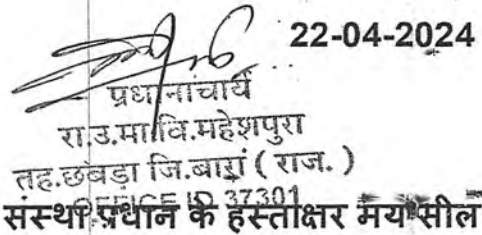 22-04-2024
प्रधानाचार्य
रा.उ.मा.वि.महेशपुरा
तह.छबड़ा जि.बारां ( राज. )
OFFICE ID 37301
संस्था प्रधान के हस्ताक्षर मय सील